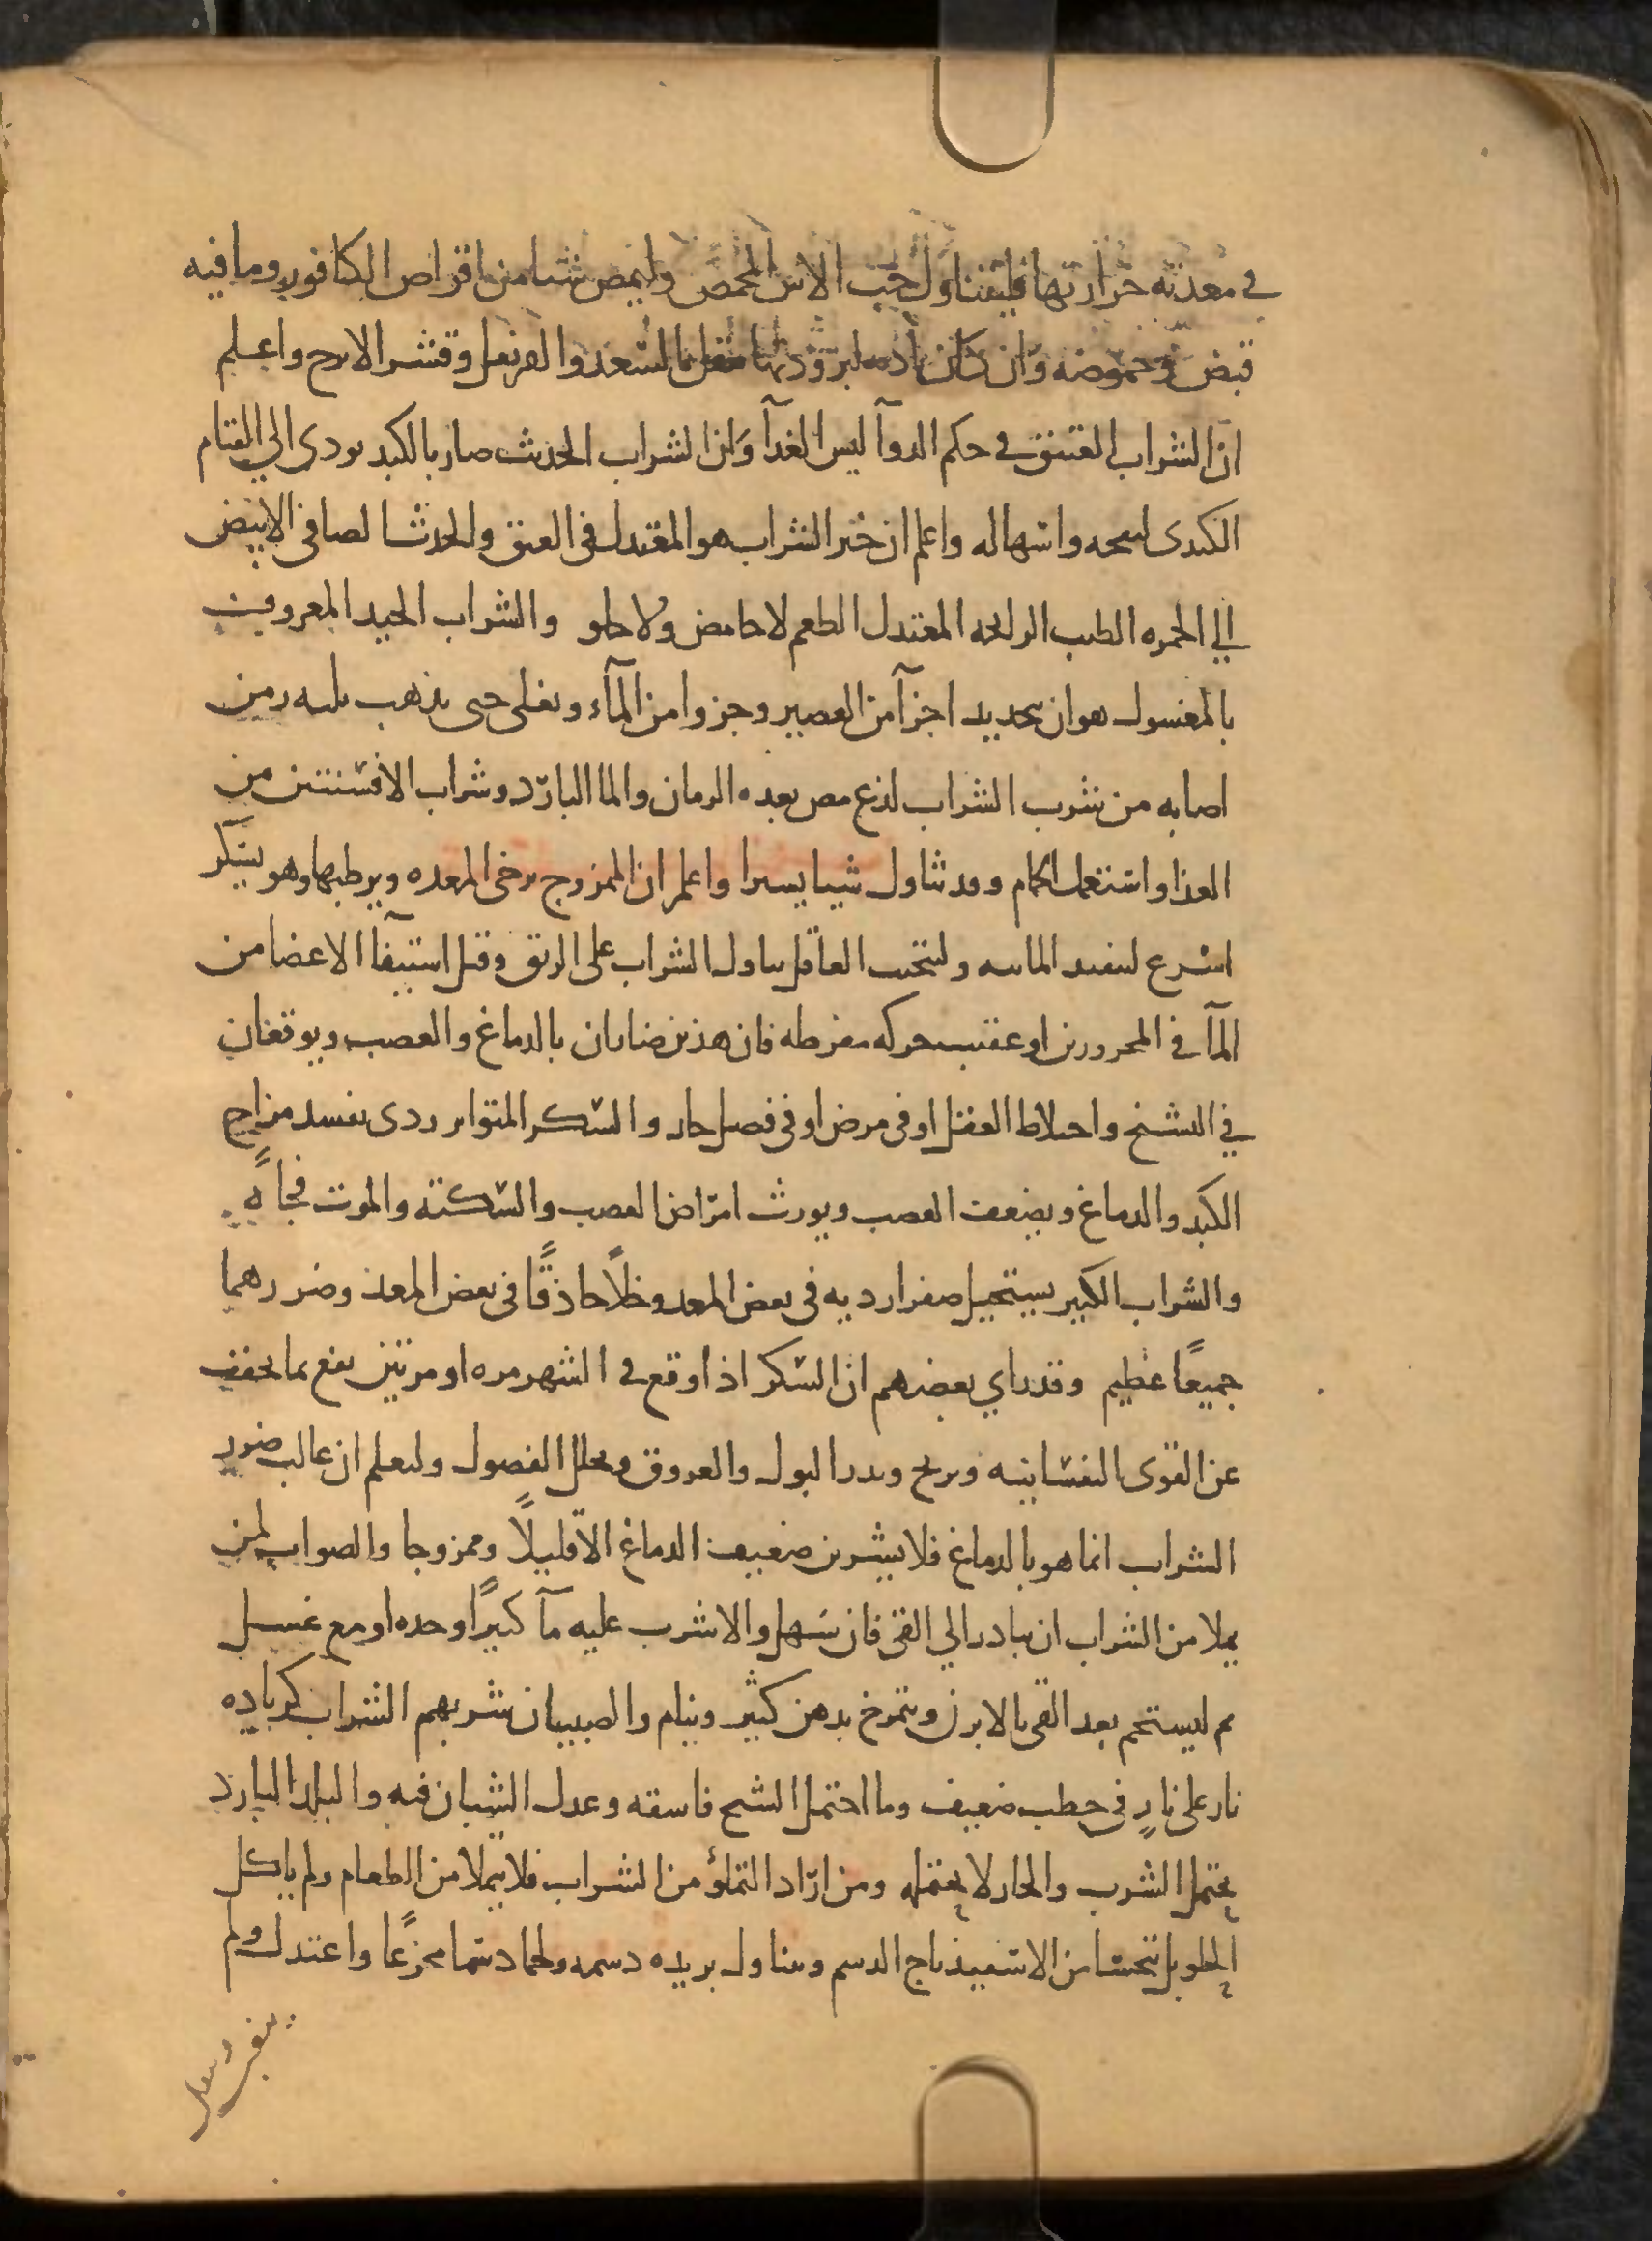 في معدته حرارتها فليتناول حب الاس المحمص وليمص شيا من اقراص الكافور وما فيه
قبض وحموضه وان كان تاذيه لبرودتها تنقل بالسعد والقرنفل وقشر الاترج واعلم
ان الشراب العتيق في حكم الدوآ ليس الغدآ وان الشراب الحديث ضار بالكبد يودي الى القيام
الكبدى لنفحه واسهاله واعلم ان خير الشراب هو المعتدل في العتق والحدث الصافي الابيض
الي الحمره الطيب الرايحه المعتدل الطعم لا حامض ولا حلو والشراب الجيد المعروف
بالمغسول هو ان اجزآ من العصير وجزوا من المآء ويغلى حتى يذهب ثلثه ومن
اصابه من شرب الشراب لذع مص بعده الرمان والما البارد وشراب الافسنتين من
الغد واستعمل الحمام وقد تناول شيا يسيرا واعلم ان الممزوج يرخى المعده ويرطبها وهو يسكر
اسرع لتنفيد المائيه وليتجنب العاقل تناول الشراب على الريق وقبل استيفآ الاعضا من
المآ في المحرورين او عقيب حركه مفرطه فان هذين ضاران بالدماغ والعصب ويوقعان
في التشنج واختلاط العقل او في مرض او في فصل حار والسكر المتواتر ردى يفسد مزاج
الكبد والدماغ ويضعف العصب ويورث امراض العصب والسكته والموت فجاًه
والشراب الكثير يستحيل صفرا رديه في بعض المعد وخلاً حاذقًا في بعض المعد وضررهما
جميعًا عظيم وقد راي بعضهم ان السكر اذ اوقع في الشهر مره او مرتين نفع بما يخفف
عن القوى النفسانيه ويريح ويدر البول والعروق ويحلل الفضول وليعلم ان غالب ضرر
الشراب انما هو بالدماغ فلا يشربن ضعيف الدماغ الا قليلاً وممزوجا والصواب لمن
يملا من الشراب ان يبادر الي القي فان سهل والا شرب عليه مآ كثيرًا وحده او مع عسل
ثم ليستحم بعد القي بالابزن ويتمرخ بدهن كثير وينام والصبيان شربهم الشراب كزياده
نار على نارٍ في حطب ضعيف وما احتمل الشيخ فاسقه وعدل الشبان فيه والبلد البارد
يحتمل الشرب والحار لا يحتمله ومن اراد التملؤ من الشراب فلا يتملا من الطعام ولم ياكل
الحلو بل يتحسا من الاسفيذباج الدسم ويتناول ثريده دسمه ولحما دسما مجزعًا واعتدل ولم